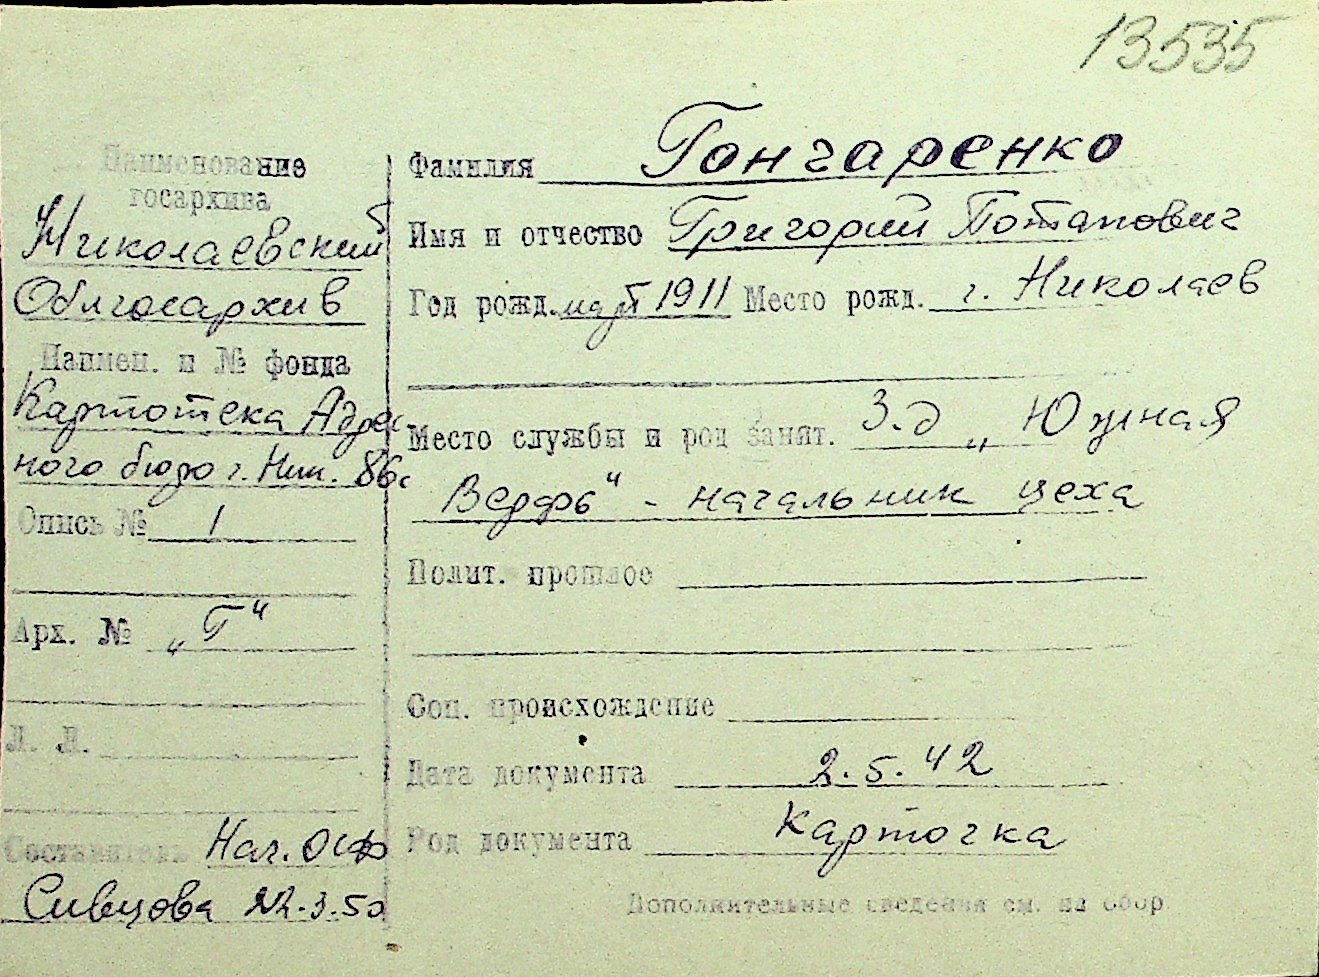 13535
Наименование
госархива
Николаевский
Облгосархив
Наимен. и № фонда
Картотека Адрес
ного бюро г. Ник. 86с
Опись № 1
Арх. № „Г"
Л. Л.
Составитель Нач. ОСФ
Сивцова 22.3.50
Фамилия Гончаренко
Имя и отчество Григорий Потапович
Год рожд. март 1911 Место рожд. г. Николаев
Место службы и род занят. З-д „Южная
Верфь" - начальник цеха
Полит. прошлое
Соц. происхождение
Дата документа 2.5.42
Род документа Карточка
Дополнительные сведения см. на обор